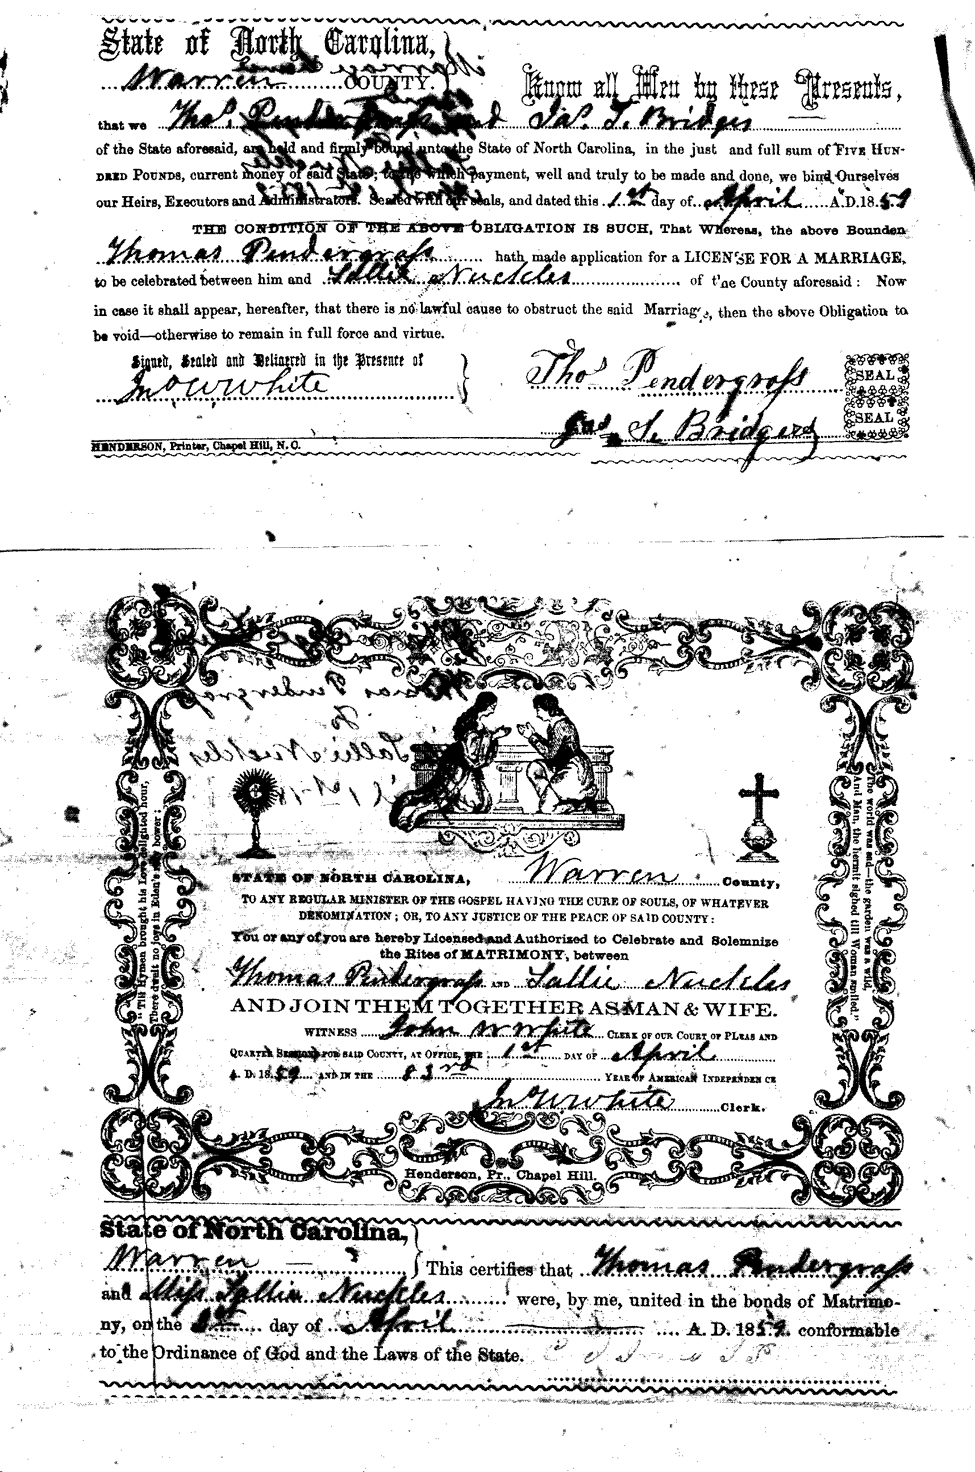 State of North Carolina,
Warren COUNTY.
Know all Men by these Presents,
that we Thos. Pendergrass and Jas. T. Bridges
of the State aforesaid, are held and firmly bound unto the State of North Carolina, in the just and full sum of FIVE HUN-
DRED POUNDS, current money of said State; to the which payment, well and truly to be made and done, we bind Ourselves
our Heirs, Executors and Administrators. Sealed with our seals, and dated this 1st day of April A.D. 1859
THE CONDITION OF THE ABOVE OBLIGATION IS SUCH, That Whereas, the above Bounden
Thomas Pendergrass hath made application for a LICENSE FOR A MARRIAGE,
to be celebrated between him and Sallie Nuckles of the County aforesaid: Now
in case it shall appear, hereafter, that there is no lawful cause to obstruct the said Marriage, then the above Obligation to
be void—otherwise to remain in full force and virtue.
Signed, Sealed and Delivered in the Presence of
Jno W White
Thos Pendergrass SEAL
Jas. S. Bridgers SEAL
HENDERSON, Printer, Chapel Hill, N. C.
Thomas Pendergrass
To
Sallie Nuckles
"Till Hymen brought his Love-delighted hour,
There dwelt no joys in Eden's rosy bower:
The world was sad—the garden was a wild,
And Man, the hermit sighed till Woman smiled."
STATE OF NORTH CAROLINA, Warren County,
TO ANY REGULAR MINISTER OF THE GOSPEL HAVING THE CURE OF SOULS, OF WHATEVER
DENOMINATION; OR, TO ANY JUSTICE OF THE PEACE OF SAID COUNTY:
You or any of you are hereby Licensed and Authorized to Celebrate and Solemnize
the Rites of MATRIMONY, between
Thomas Pendergrass AND Sallie Nuckles
AND JOIN THEM TOGETHER AS MAN & WIFE.
WITNESS John W White CLERK OF OUR COURT OF PLEAS AND
QUARTER SESSIONS FOR SAID COUNTY, AT OFFICE, THE 1st DAY OF April
A. D. 1859 AND IN THE 83rd YEAR OF AMERICAN INDEPENDENCE
Jno W White Clerk.
Henderson, Pr., Chapel Hill.
State of North Carolina,
Warren This certifies that Thomas Pendergrass
and Miss Sallie Nuckles were, by me, united in the bonds of Matrimo-
ny, on the 1st day of April A. D. 1859. conformable
to the Ordinance of God and the Laws of the State.